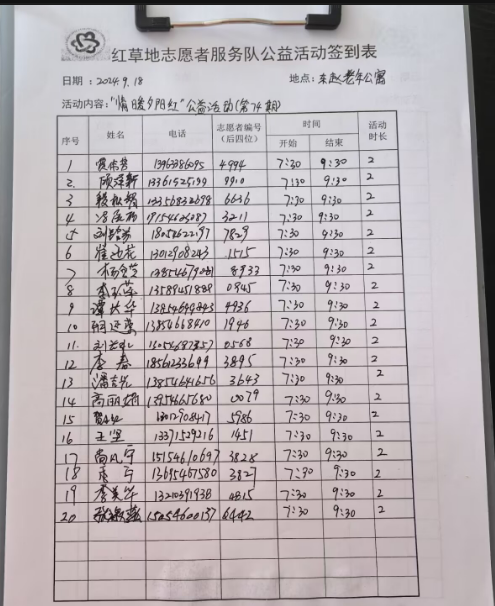 红草地志愿者服务队公益活动签到表
日期：2024.9.18 地点：来赵老年公寓
活动内容："情暖夕阳红"公益活动(第74期)
序号 姓名 电话 志愿者编号(后四位) 时间 开始 结束 活动时长
1 4994 7:30 9:30 2
2. 顾泽新 13361525199 9910 7:30 9:30 2
3 13356832698 6636 7:30 9:30 2
4 3211 7:30 9:30 2
5 18054622197 7829 7:30 9:30 2
6 崔迎花 13012908243 1515 7:30 9:30 2
7 杨金芝 8933 7:30 9:30 2
8 13589451888 0845 7:30 9:30 2
9 谭其华 4936 7:30 9:30 2
10 13854668410 1946 7:30 9:30 2
11. 0568 7:30 9:30 2
12 李春 18561233699 3895 7:30 9:30 2
13 13854641656 3643 7:30 9:30 2
14 高丽娟 13954665680 0079 7:30 9:30 2
15 13012908417 5986 7:30 9:30 2
16 王坚 13371529216 1451 7:30 9:30 2
17 尚凡宁 15154610697 3828 7:30 9:30 2
18 13695467580 3827 7:30 9:30 2
19 李美华 13210391938 0815 7:30 9:30 2
20 15254600137 6442 7:30 9:30 2